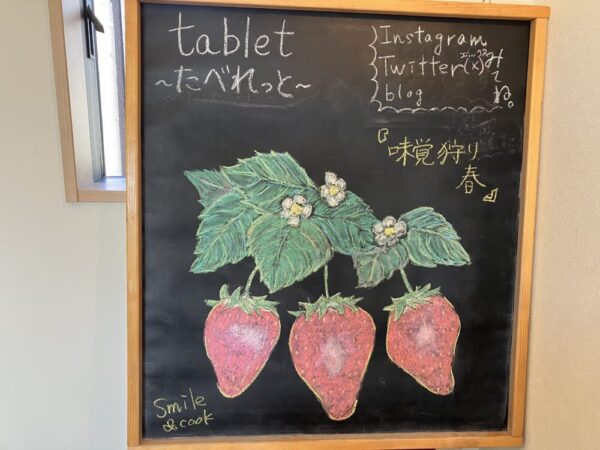 tablet
~たべれっと~
Instagram
Twitter(X)
blog
みてね。
『味覚狩り
春』
Smile
&cook